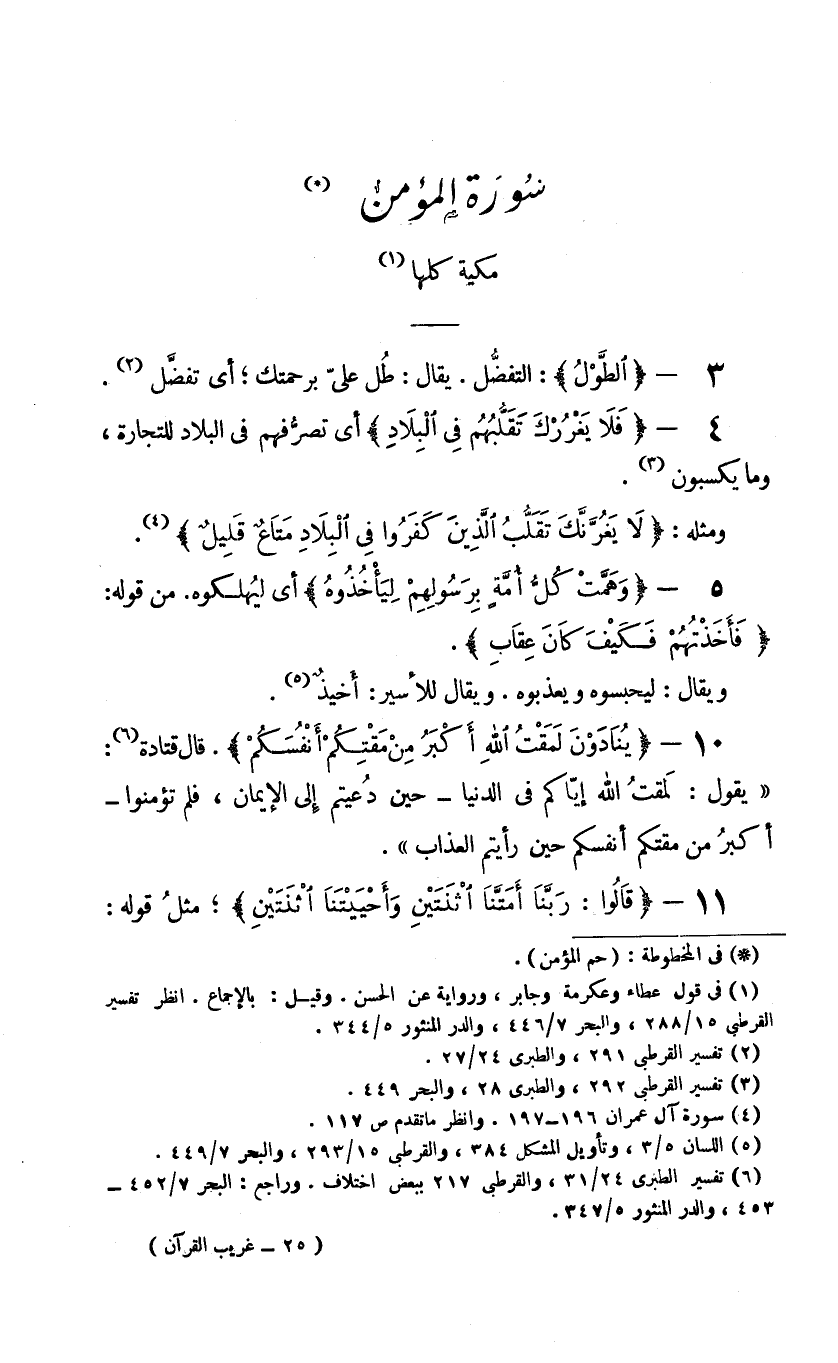 سُورَة المؤمن (*)
مكية كلها (١)
٣ — ﴿ ٱلطَّوْلُ ﴾ : التفضُّل . يقال : طُل علىّ برحمتك ؛ أى تفضَّل (٢) .
٤ — ﴿ فَلَا يَغْرُرْكَ تَقَلُّبُهُم فِى ٱلْبِلَادِ ﴾ أى تصرُّفهم فى البلاد للتجارة ،
وما يكسبون (٣) .
ومثله : ﴿ لَا يَغُرَّنَّكَ تَقَلُّبُ ٱلَّذِينَ كَفَرُوا فِى ٱلْبِلَادِ مَتَاعٌ قَلِيلٌ ﴾ (٤) .
٥ — ﴿ وَهَمَّتْ كُلُّ أُمَّةٍ بِرَسُولِهِمْ لِيَأْخُذُوهُ ﴾ أى ليُهلكوه. من قوله:
﴿ فَأَخَذْتُهُمْ فَكَيْفَ كَانَ عِقَابِ ﴾ .
ويقال : ليحبسوه ويعذبوه . ويقال للأسير: أخيذٌ (٥) .
١٠ — ﴿ يُنَادَوْنَ لَمَقْتُ ٱللهِ أَكْبَرُ مِنْ مَقْتِكُمْ أَنْفُسَكُمْ ﴾ . قال قتادة (٦) :
« يقول : لمقتُ الله إيّاكم فى الدنيا — حين دُعيتم إلى الإيمان ، فلم تؤمنوا —
أكبرُ من مقتكم أنفسكم حين رأيتم العذاب » .
١١ — ﴿ قَالُوا : رَبَّنَا أَمَتَّنَا ٱثْنَتَيْنِ وَأَحْيَيْتَنَا ٱثْنَتَيْنِ ﴾ ؛ مثلُ قوله :
(*) فى المخطوطة : ( حم المؤمن ) .
(١) فى قول عطاء وعكرمة وجابر ، ورواية عن الحسن . وقيل : بالإجماع . انظر تفسير
القرطبى ٢٨٨/١٥ ، والبحر ٤٤٦/٧ ، والدر المنثور ٣٤٤/٥ .
(٢) تفسير القرطبى ٢٩١ ، والطبرى ٢٧/٢٤ .
(٣) تفسير القرطبى ٢٩٢ ، والطبرى ٢٨ ، والبحر ٤٤٩ .
(٤) سورة آل عمران ١٩٦—١٩٧ . وانظر ماتقدم ص ١١٧ .
(٥) اللسان ٣/٥ ، وتأويل المشكل ٣٨٤ ، والقرطبى ٢٩٣/١٥ ، والبحر ٤٤٩/٧ .
(٦) تفسير الطبرى ٣١/٢٤ ، والقرطبى ٢١٧ ببعض اختلاف . وراجع : البحر ٤٥٢/٧ —
٤٥٣ ، والدر المنثور ٣٤٧/٥ .
( ٢٥ — غريب القرآن )